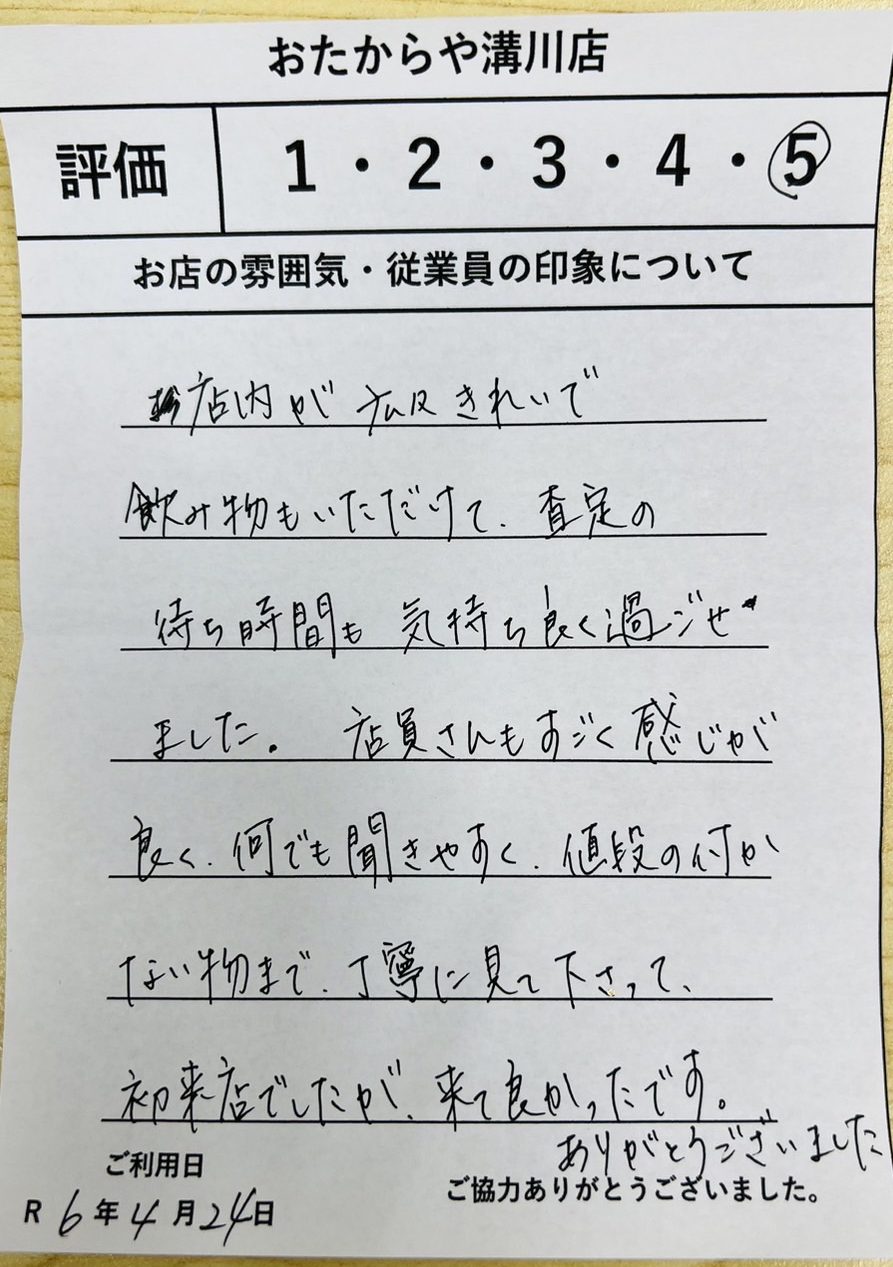 おたからや溝川店
評価 1・2・3・4・5
お店の雰囲気・従業員の印象について
店内が広くきれいで
飲み物もいただけて、査定の
待ち時間も気持ち良く過ごせ
ました。店員さんもすごく感じが
良く、何でも聞きやすく、値段の付か
ない物まで、丁寧に見て下さって、
初来店でしたが、来て良かったです。
ありがとうございました
ご利用日
ご協力ありがとうございました。
R 6年4月24日